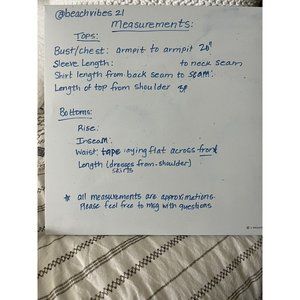 @beachvibes21
Measurements:
Tops:
Bust/chest: armpit to armpit 20"
Sleeve Length: to neck seam
Shirt length from back seam to seam:
Length of top from shoulder
Bottoms:
Rise:
Inseam:
Waist: tape laying flat across front
Length (dresses from shoulder)
skirts
* all measurements are approximations.
Please feel free to msg with questions